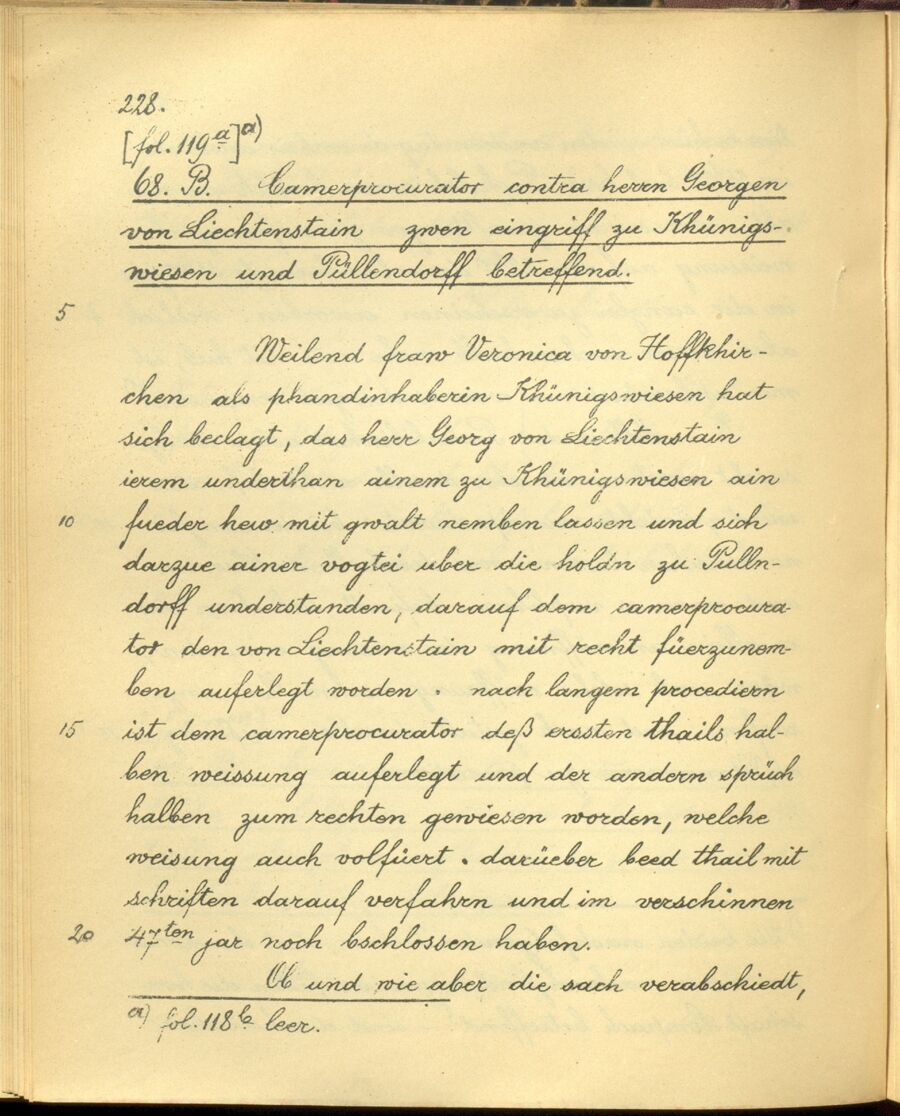 228.
[fol. 119a]a)
68. B. Camerprocurator contra herrn Georgen
von Liechtenstain zwen eingriff zu Khünigs-
wiesen und Püllendorff betreffend.
5
Weilend fraw Veronica von Hoffkhir-
chen als phandinhaberin Khünigswiesen hat
sich beclagt, das herr Georg von Liechtenstain
ierem underthan ainem zu Khünigswiesen ain
10 fueder hew mit gwalt nemben lassen und sich
darzue ainer vogtei uber die holdn zu Pulln-
dorff understanden, darauf dem camerprocura-
tor den von Liechtenstain mit recht füerzunem-
ben auferlegt worden. nach langem procediern
15 ist dem camerprocurator deß erssten thails hal-
ben weissung auferlegt und der andern sprüch
halben zum rechten gewiesen worden, welche
weisung auch volfüert. darüeber beed thail mit
schriften darauf verfahrn und im verschinnen
20 47ten jar noch bschlossen haben.
Ob und wie aber die sach verabschiedt,
a) fol. 118b leer.